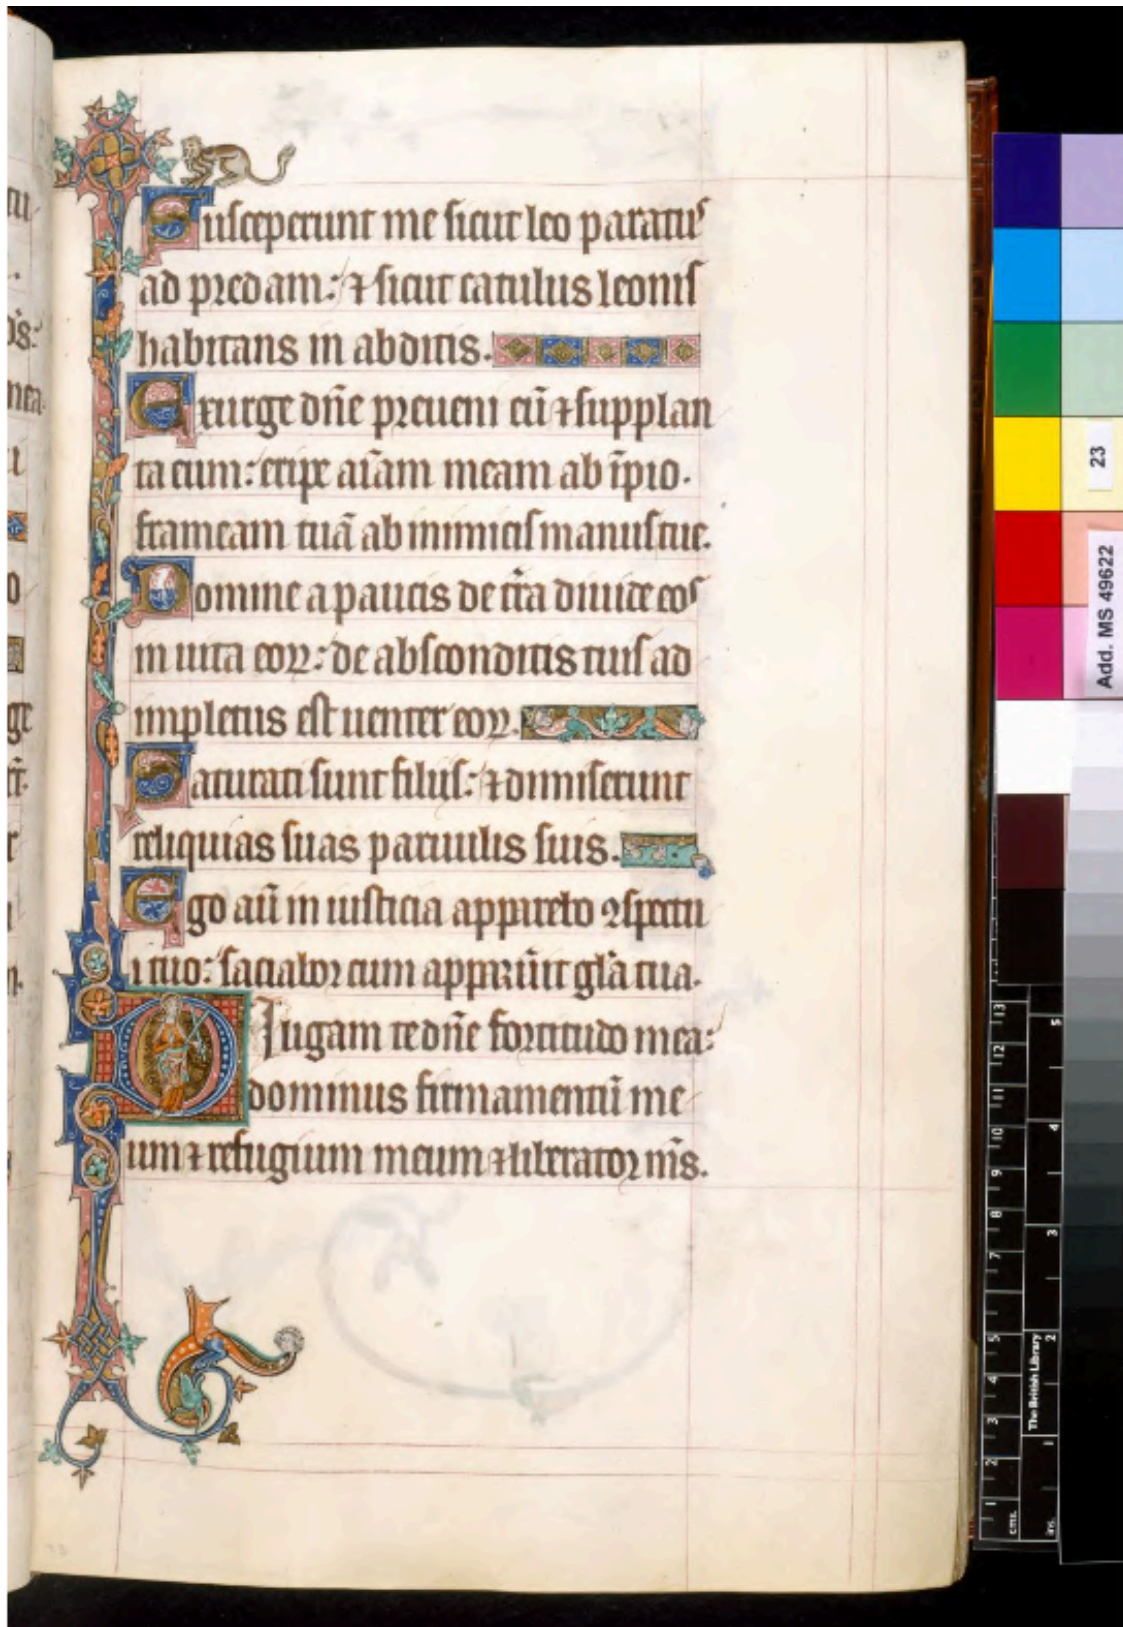 Susceperunt me sicut leo paratus
ad predam: ⁊ sicut catulus leonis
habitans in abditis.
Exurge dñe preueni eū ⁊ supplan
ta eum: eripe aīam meam ab īpio.
frameam tuā ab inimicis manus tue.
Domine a paucis de tr̄a diuide eos
in uita eoꝝ: de absconditis tuis ad
impletus est uenter eoꝝ.
Saturati sunt filiis: ⁊ dimiserunt
reliquias suas paruulis suis.
Ego aūt in iusticia apparebo ꝯspectu
i tuo: saciabor cum apparūit gl̄a tua.
Diligam te dñe fortitudo mea:
dominus firmamentū me
um ⁊ refugium meum ⁊ liberator m̄s.
23
Add. MS 49622
The British Library
cms. 1 2 3 4 5 7 8 9 10 11 12 13
ins. 1 2 3 4 5